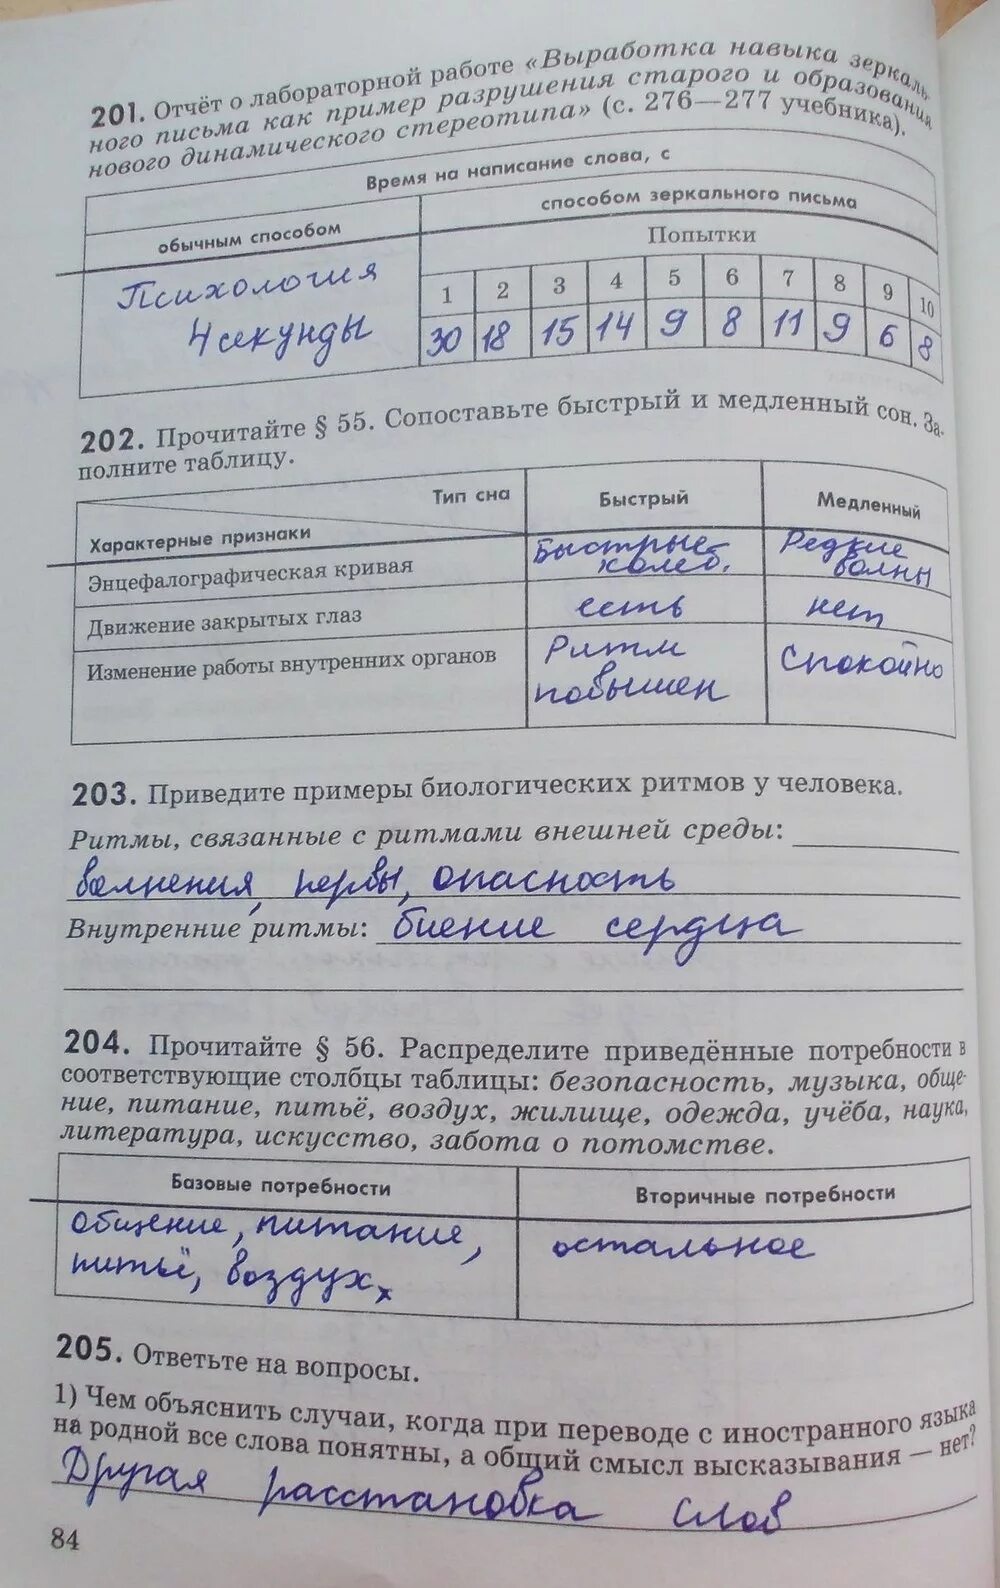 201. Отчёт о лабораторной работе «Выработка навыка зеркаль-
ного письма как пример разрушения старого и образования
нового динамического стереотипа» (с. 276—277 учебника).
Время на написание слова, с
обычным способом
способом зеркального письма
Попытки
Психология
4 секунды
1 2 3 4 5 6 7 8 9 10
30 18 15 14 9 8 11 9 6 8
202. Прочитайте § 55. Сопоставьте быстрый и медленный сон. За-
полните таблицу.
Тип сна
Характерные признаки
Быстрый
Медленный
Энцефалографическая кривая
Быстрые
колеб.
Редкие
волны
Движение закрытых глаз
есть
нет
Изменение работы внутренних органов
Ритм
повышен
Спокойно
203. Приведите примеры биологических ритмов у человека.
Ритмы, связанные с ритмами внешней среды:
волнения, нервы, опасность
Внутренние ритмы: биение сердца
204. Прочитайте § 56. Распределите приведённые потребности в
соответствующие столбцы таблицы: безопасность, музыка, обще-
ние, питание, питьё, воздух, жилище, одежда, учёба, наука,
литература, искусство, забота о потомстве.
Базовые потребности
Вторичные потребности
общение, питание,
питьё, воздух,
остальное
205. Ответьте на вопросы.
1) Чем объяснить случаи, когда при переводе с иностранного языка
на родной все слова понятны, а общий смысл высказывания — нет?
Другая расстановка слов
84